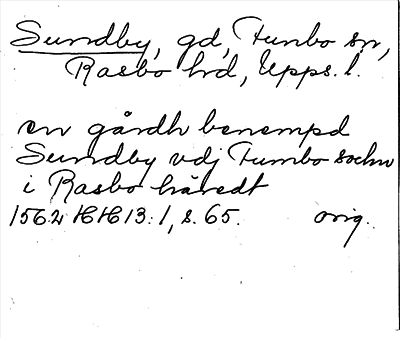 Sundby, gd, Funbo sn,
Rasbo hd, Upps. l.
en gårdh benempd
Sundby vdj Fumbo sochn
i Rasbo häredt
1562 HH 13:1, s. 65. orig.